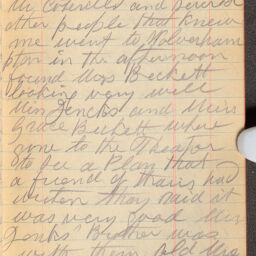 Mr Coterills and several
other people that knew
me went to Wolverham
pton in the afternoon
found Mrs Beckett
looking very well
Miss Jencks and Miss
Grace Beckett where
gone to the Theator
to see a Plan that
a friend of thairs had
writen they said it
was very good Miss
Jenks' Brother was
with them old Mrs